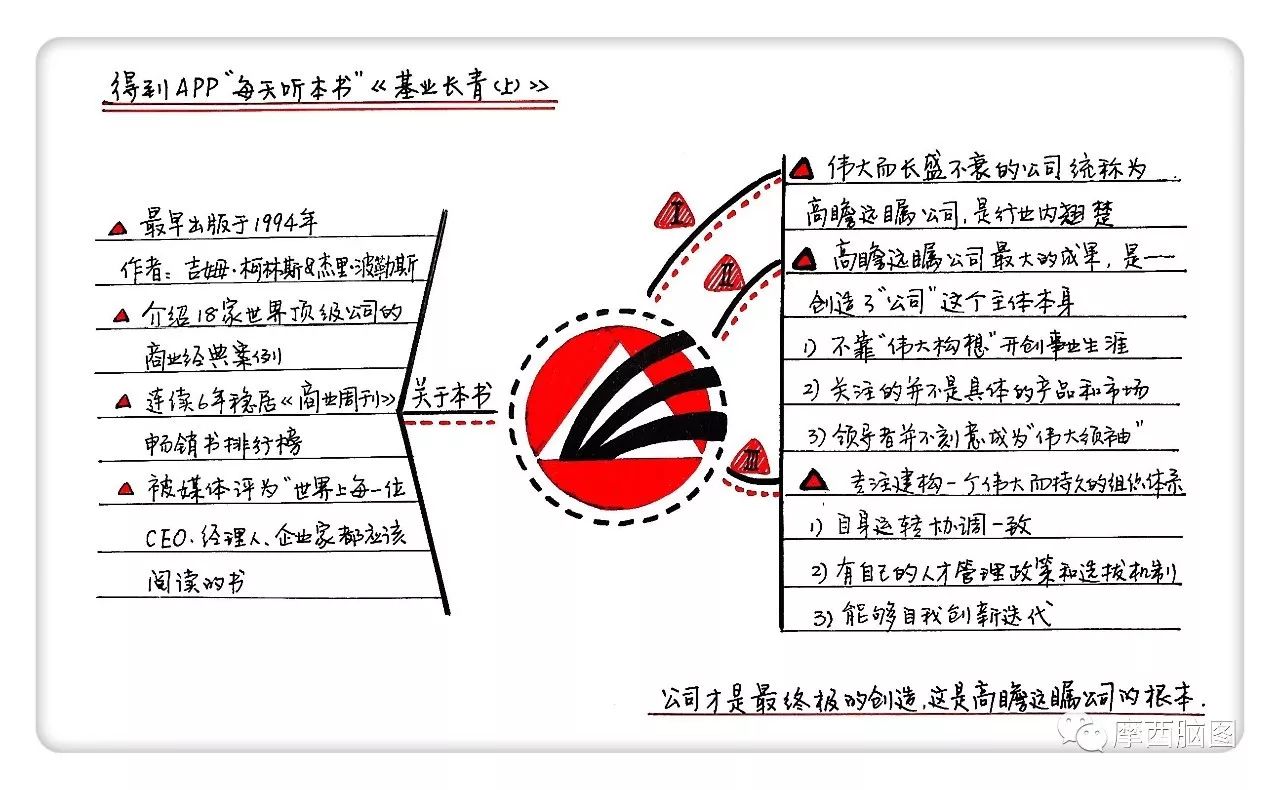 得到APP“每天听本书”《基业长青(上)》
▲ 最早出版于1994年
作者：吉姆·柯林斯&杰里·波勒斯
▲ 介绍18家世界顶级公司的
商业经典案例
▲ 连续6年稳居《商业周刊》
畅销书排行榜
▲ 被媒体评为“世界上每一位
CEO、经理人、企业家都应该
阅读的书
关于本书
I
II
III
▲ 伟大而长盛不衰的公司统称为
高瞻远瞩公司，是行业内翘楚
▲ 高瞻远瞩公司最大的成果，是一一
创造了“公司”这个主体本身
1) 不靠“伟大构想”开创事业生涯
2) 关注的并不是具体的产品和市场
3) 领导者并不刻意成为“伟大领袖”
▲ 专注建构一个伟大而持久的组织体系
1) 自身运转协调一致
2) 有自己的人才管理政策和选拔机制
3) 能够自我创新迭代
公司才是最终极的创造，这是高瞻远瞩公司的根本.
摩西脑图